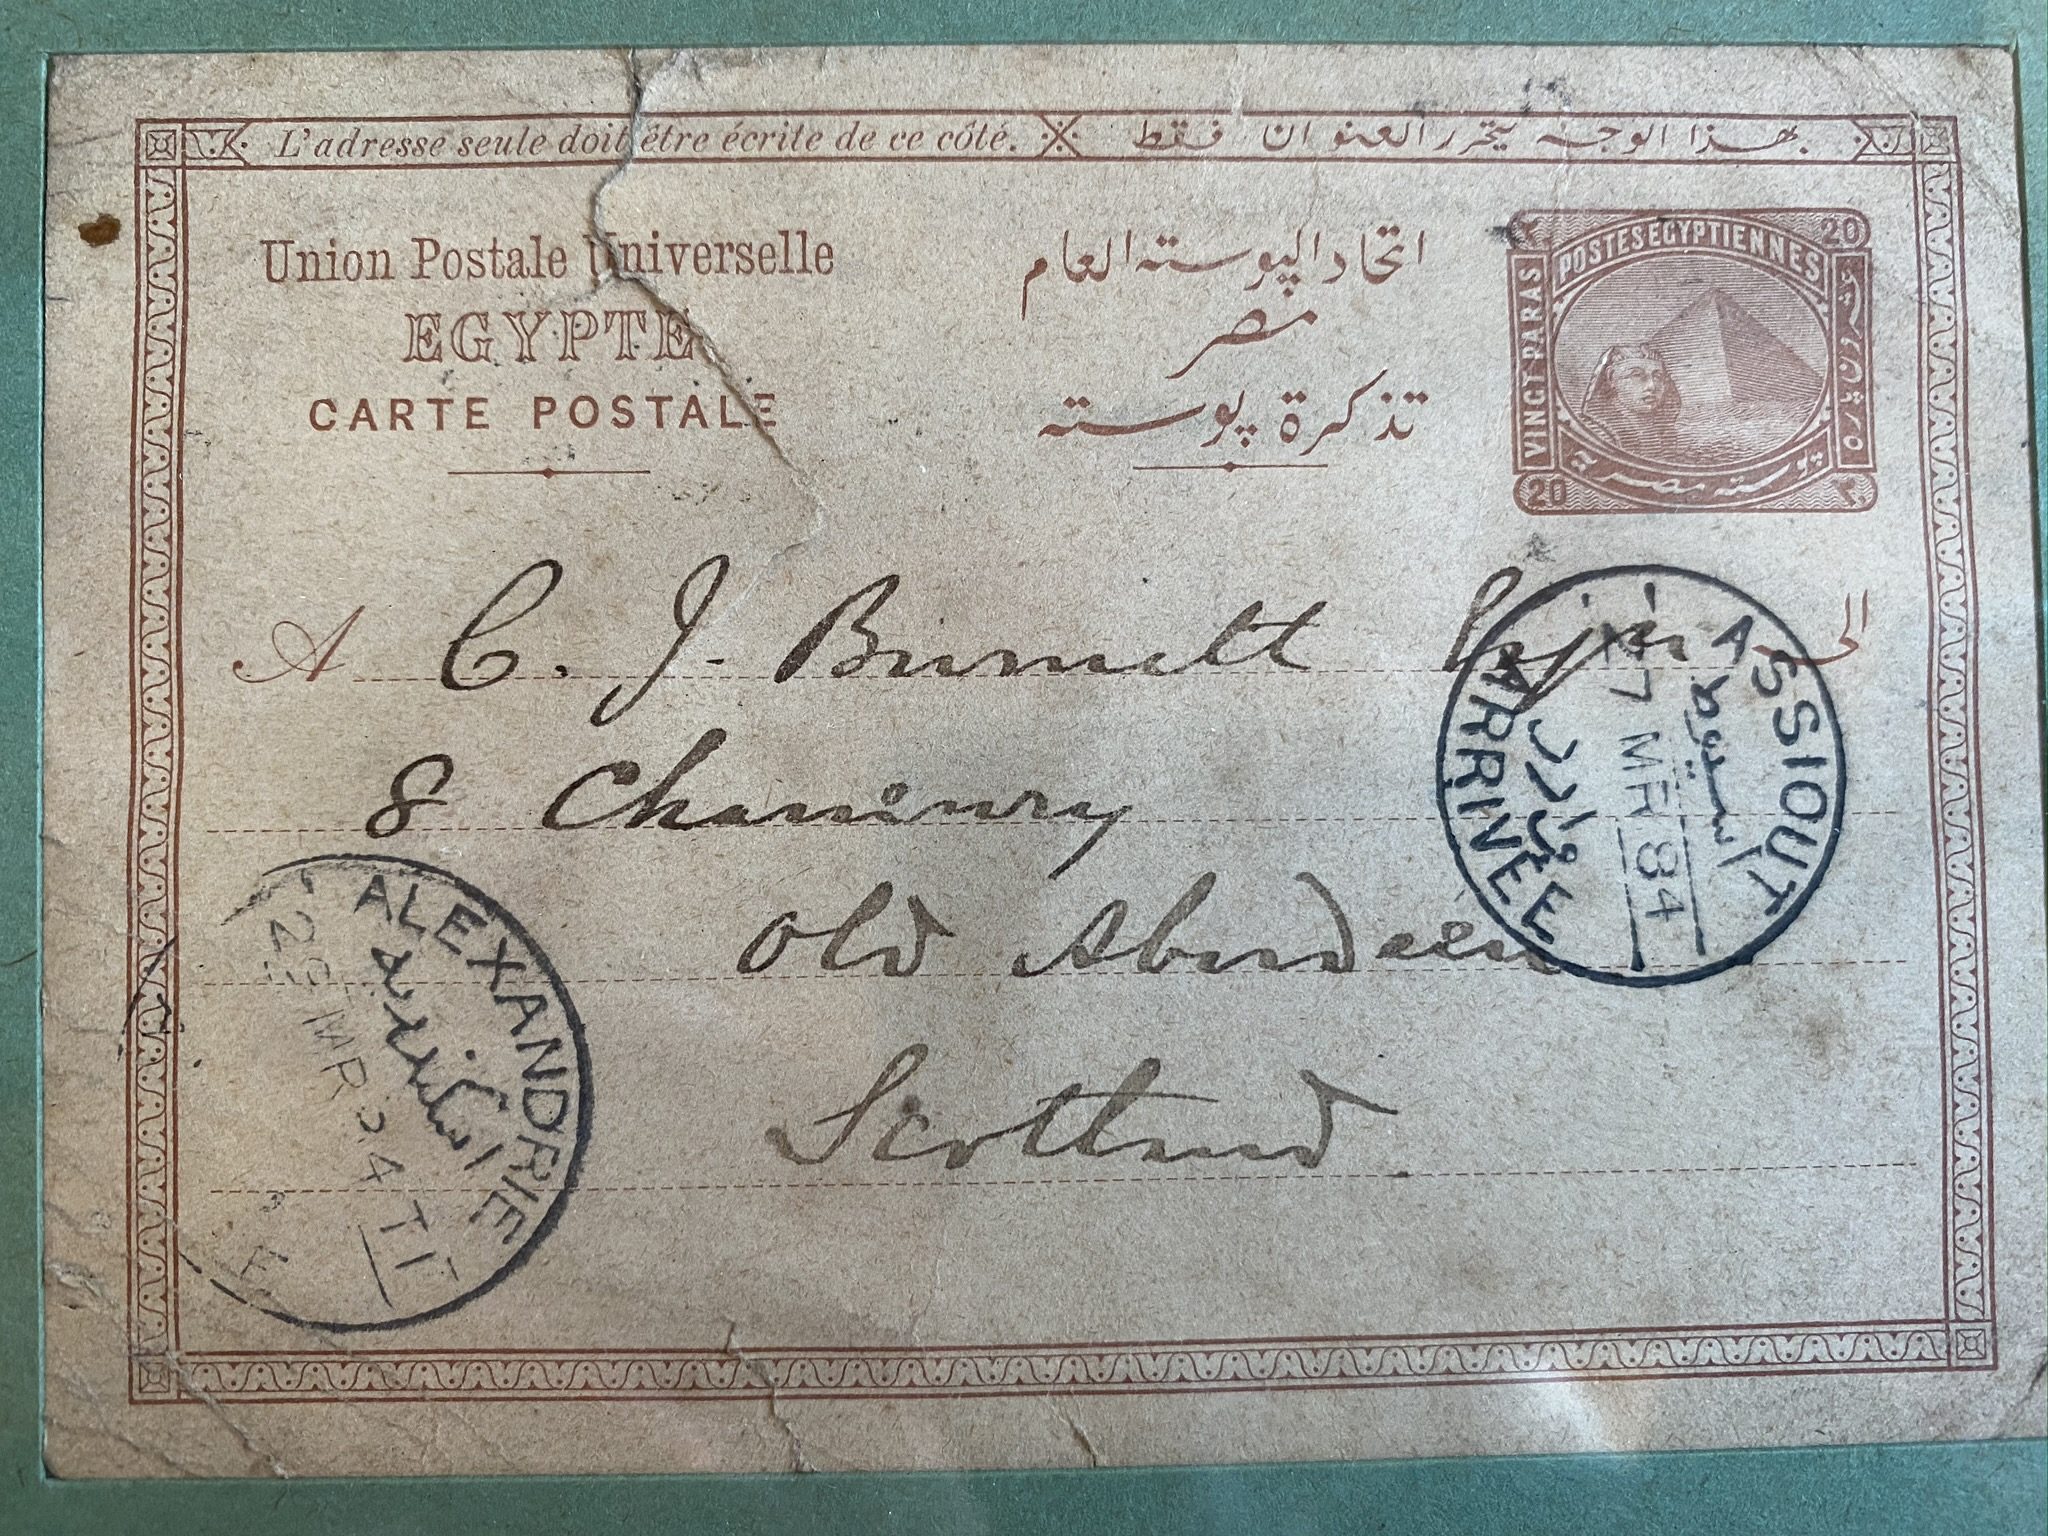 L'adresse seule doit être écrite de ce côté. بهذا الوجه يتحرر العنوان فقط
Union Postale Universelle
EGYPTE
CARTE POSTALE
اتحاد البوسته العام
مصر
تذكرة بوسته
٢٠ POSTES EGYPTIENNES 20
VINGT PARAS
عشرون باره
20 بوسته مصريه ٢٠
A C. J. Burnett Esqre الى
8 Chanonry
Old Aberdeen
Scotland
ASSIOUT
اسيوط
7 MR 84
وارد
ARRIVÉE
ALEXANDRIE
اسكندريه
29 MR 84 TI